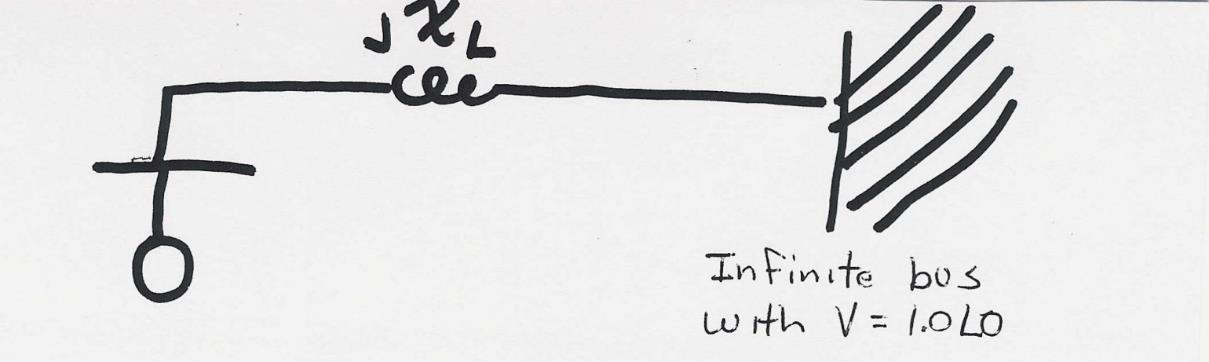 jXL
Infinite bus
with V = 1.0∠0